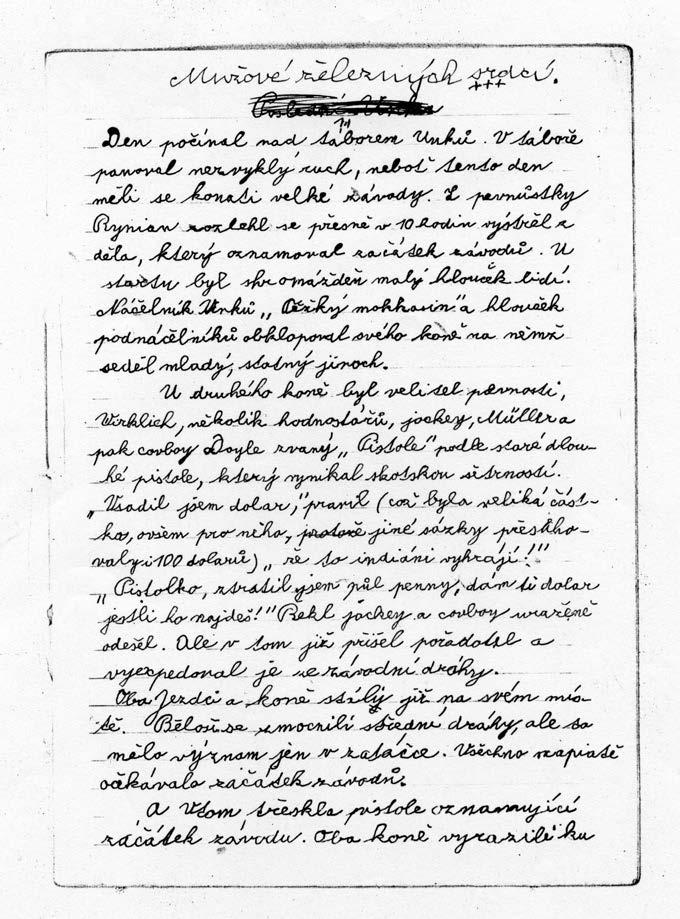 Mužové železných srdcí.
+++
Poslední Unkas
Den počínal nad táborem Unků. V táboře
panoval nezvyklý ruch, neboť tento den
měli se konati velké závody. Z pevnůstky
Rynian rozlehl se přesně v 10 hodin výstřel z
děla, který oznamoval začátek závodů. U
startu byl shromážděn malý hlouček lidí.
Náčelník Unků „Těžký mokkasin" a hlouček
podnáčelníků obklopoval svého koně na němž
seděl mladý, statný jinoch.
U druhého koně byl velitel pevnosti,
Wirklich, několik hodnostářů, jockey, Müller a
pak covboy Doyle zvaný „Pistole" podle staré dlou-
hé pistole, který vynikal skotskou šetrností.
„Vsadil jsem dolar," pravil (což byla veliká část-
ka, ovšem pro něho, protože jiné sázky přesaho-
valy i 100 dolarů) „že to indiáni vyhrájí!"
„Pistolko, ztratil jsem půl penny, dám ti dolar
jestli ho najdeš!" Řekl jockey a covboy uraženě
odešel. Ale v tom již přišel pořadatel a
vyexpedoval je ze závodní dráhy.
Oba Jezdci a koně stály již na svém mís-
tě. Běloši se zmocnili střední dráhy, ale to
mělo význam jen v zatáčce. Všechno napiatě
očkávalo začátek závodů.
A Vtom třeskla pistole oznamující
začátek závodu. Oba koně vyrazilé ku